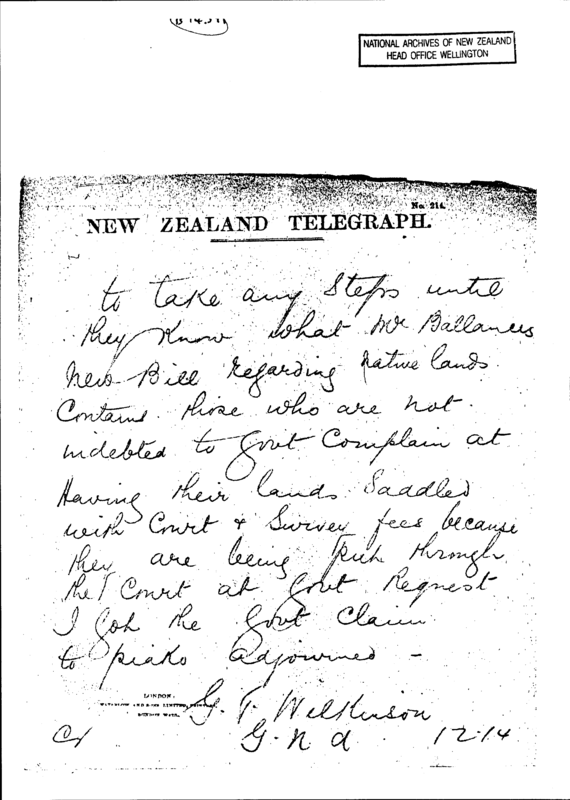 NATIONAL ARCHIVES OF NEW ZEALAND
HEAD OFFICE WELLINGTON
No. 214.
NEW ZEALAND TELEGRAPH.
to take any Steps until
they know what Mr Ballances
New Bill regarding native lands
Contains those who are not
indebted to Govt Complain at
Having their lands Saddled
with Court & Survey fees because
they are being Put through
the Court at Govt Request
I Got the Govt Claim
to piako adjourned -
G. T. Wilkinson
LONDON:
LONDON WALL.
G. N a 12.14